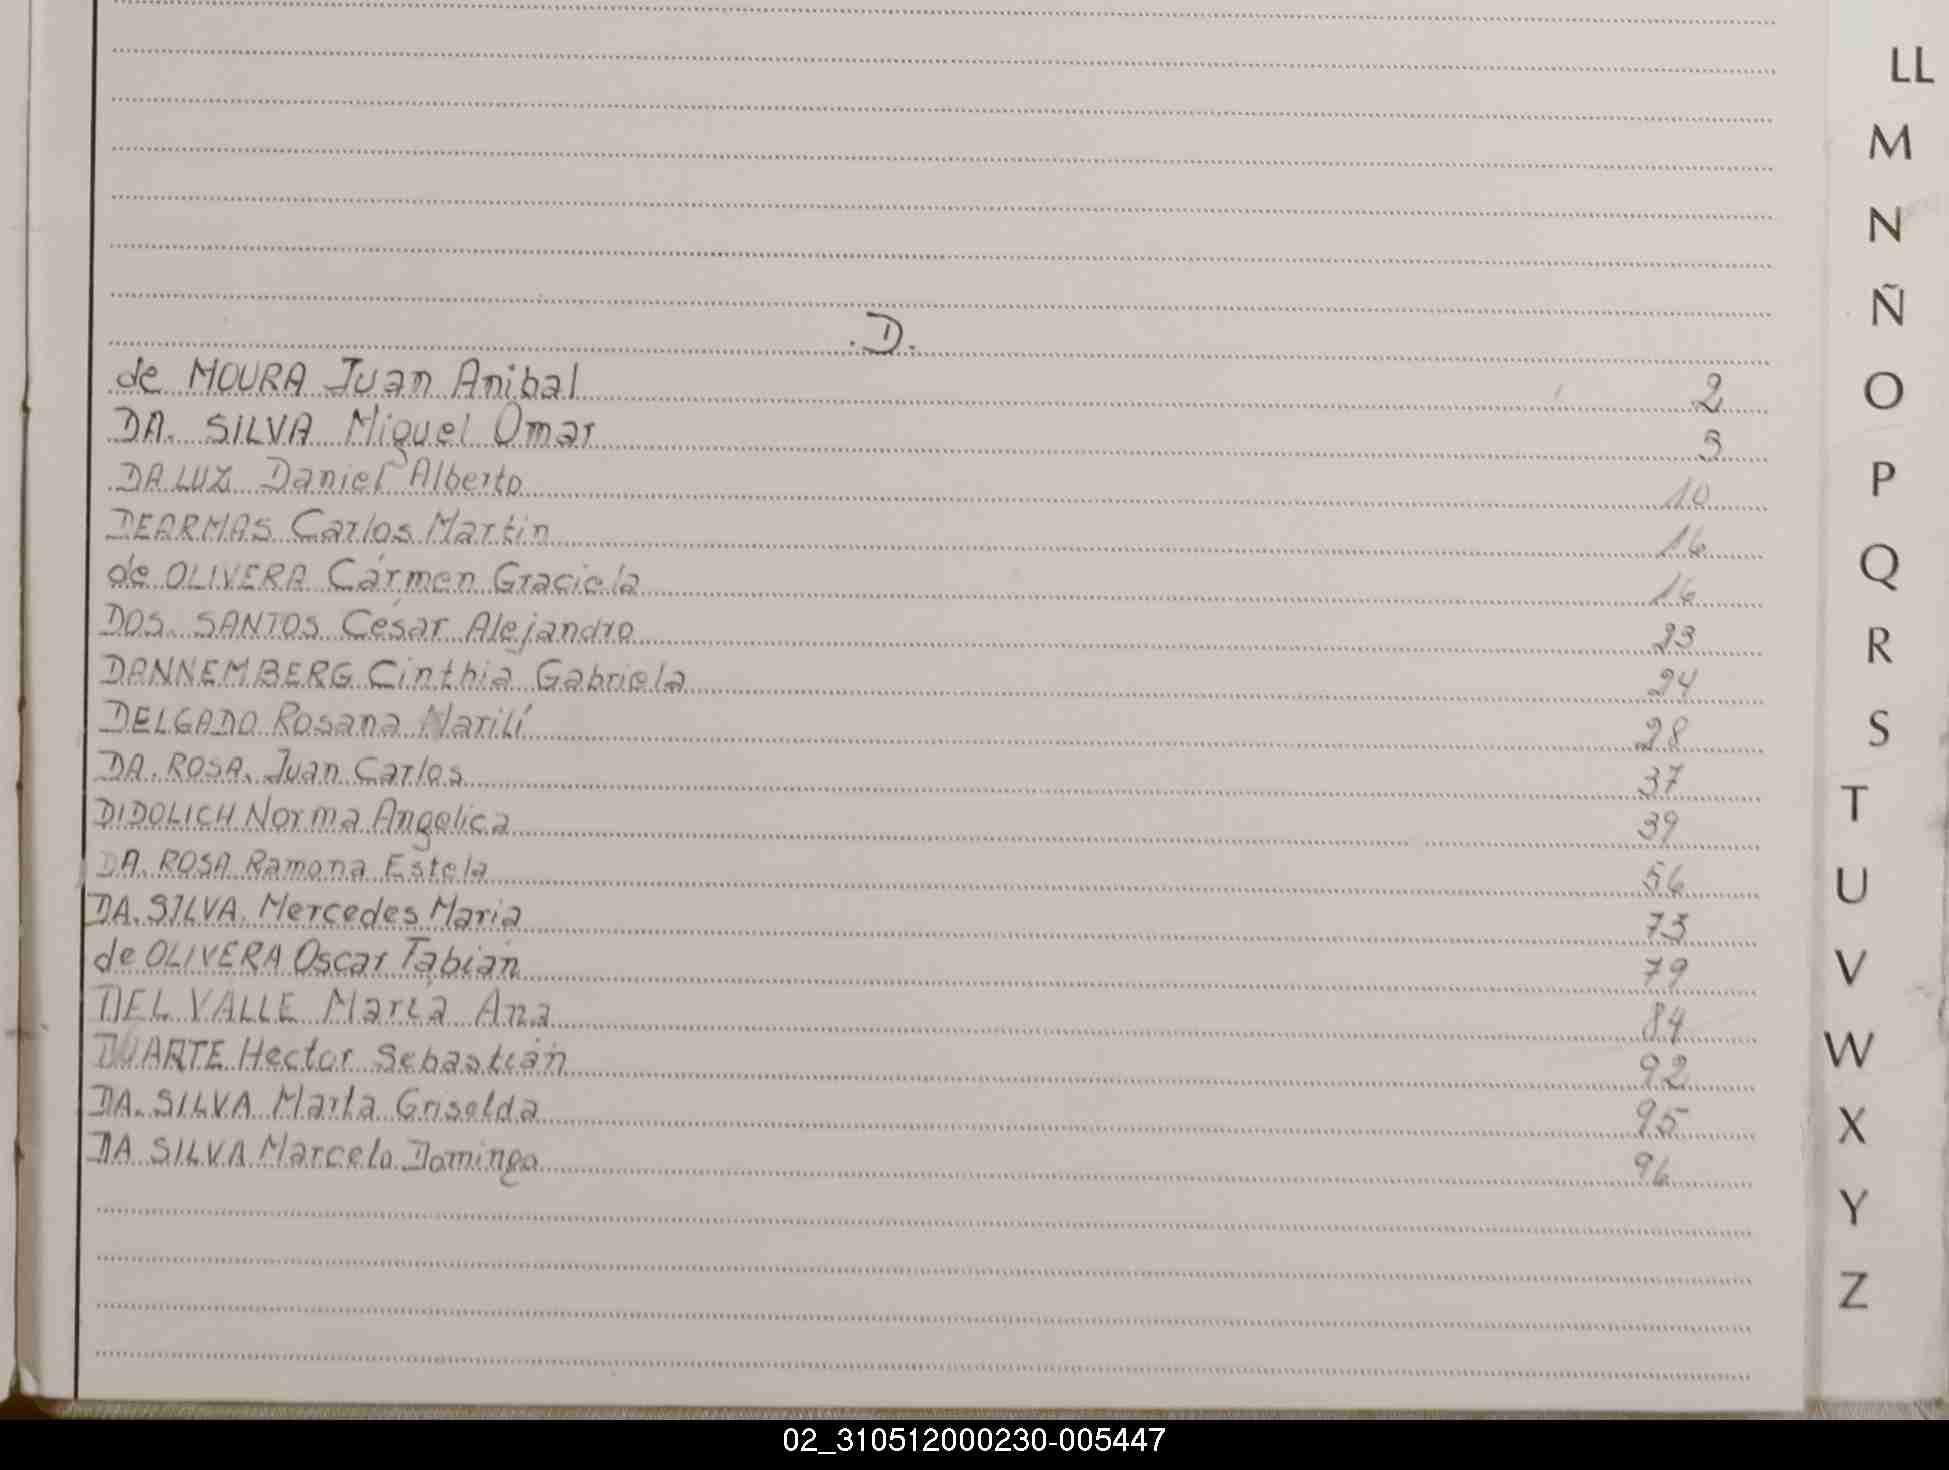 .D.
de MOURA Juan Anibal 2
DA. SILVA Miguel Omar 3
DA LUZ Daniel Alberto 10
DEARMAS Carlos Martin 16
de OLIVERA Cármen Graciela 16
DOS. SANTOS César Alejandro 23
DANNEMBERG Cinthia Gabriela 24
DELGADO Rosana Marilí 28
DA. ROSA. Juan Carlos 37
DIDOLICH Norma Angelica 39
DA. ROSA Ramona Estela 56
DA. SILVA. Mercedes Maria 73
de OLIVERA Oscar Fabián 79
DEL VALLE María Ana 84
DUARTE Hector Sebastián 92
DA. SILVA Marta Griselda 95
DA SILVA Marcelo Domingo 96
LL
M
N
Ñ
O
P
Q
R
S
T
U
V
W
X
Y
Z
02_310512000230-005447